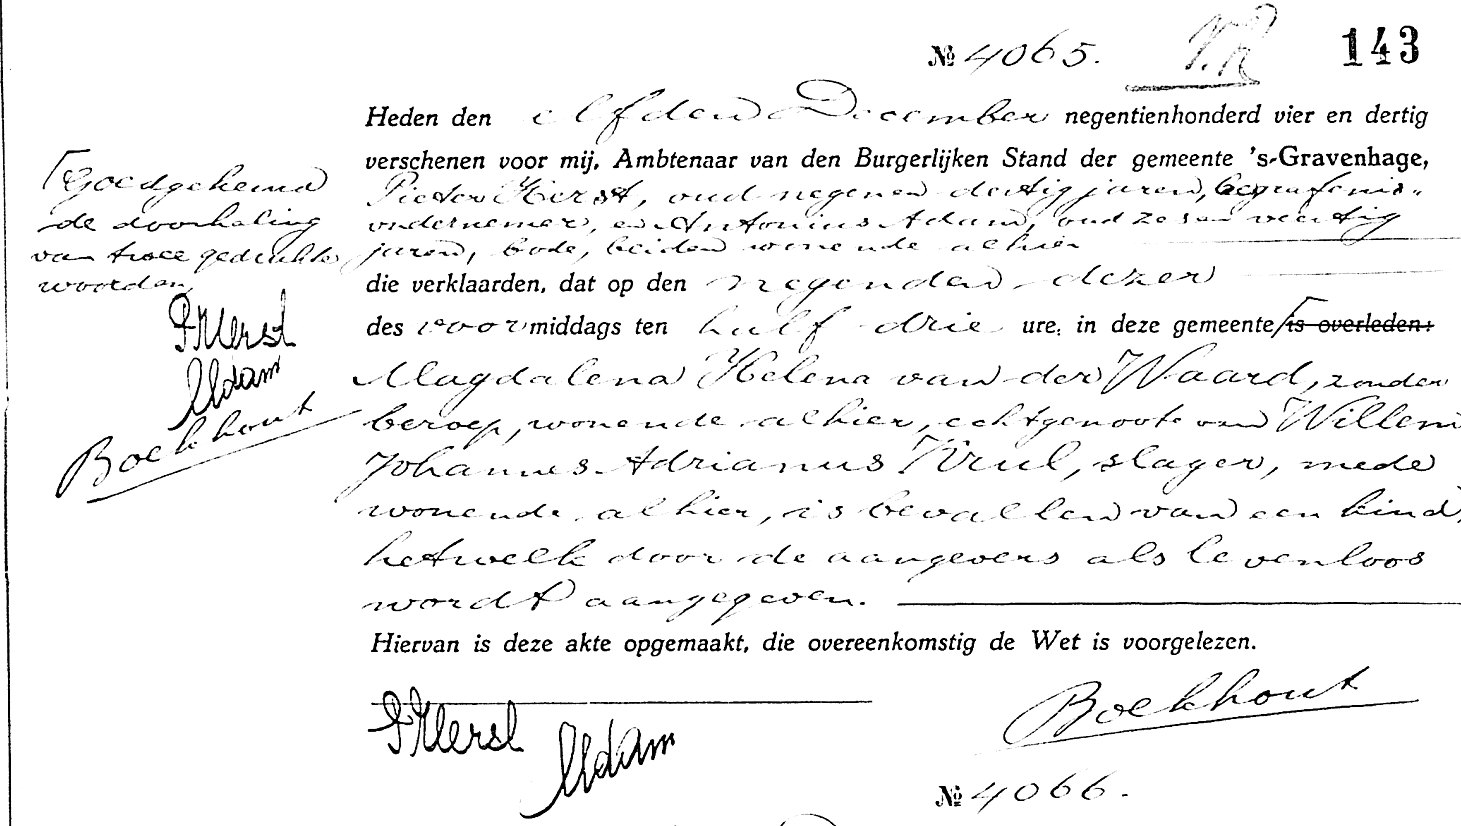 № 4065. V.R. 143
Heden den elfden December negentienhonderd vier en dertig
verschenen voor mij, Ambtenaar van den Burgerlijken Stand der gemeente 's-Gravenhage,
Pieter Herst, oud negenen dertig jaren, begrafenis-
ondernemer, en Antonius Adam, oud zesen veertig
jaren, bode, beiden wonende alhier
die verklaarden, dat op den negenden dezer
des voormiddags ten half drie ure, in deze gemeente is overleden:
Magdalena Helena van der Waard, zonder
beroep, wonende alhier, echtgenoote van Willem
Johannes Adrianus Krul, slager, mede
wonende alhier, is bevallen van een kind,
hetwelk door de aangevers als levenloos
wordt aangegeven.
Hiervan is deze akte opgemaakt, die overeenkomstig de Wet is voorgelezen.
PHerst
AAdam
Boekhout
Goedgekeurd
de doorhaling
van twee gedrukte
woorden,
PHerst
AAdam
Boekhout
№ 4066.